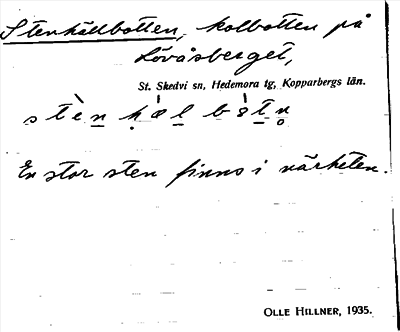 Stenhällbotten, kolbotten på
Lövåsberget,
St. Skedvi sn, Hedemora tg, Kopparbergs län.
En stor sten finns i närheten.
OLLE HILLNER, 1935.